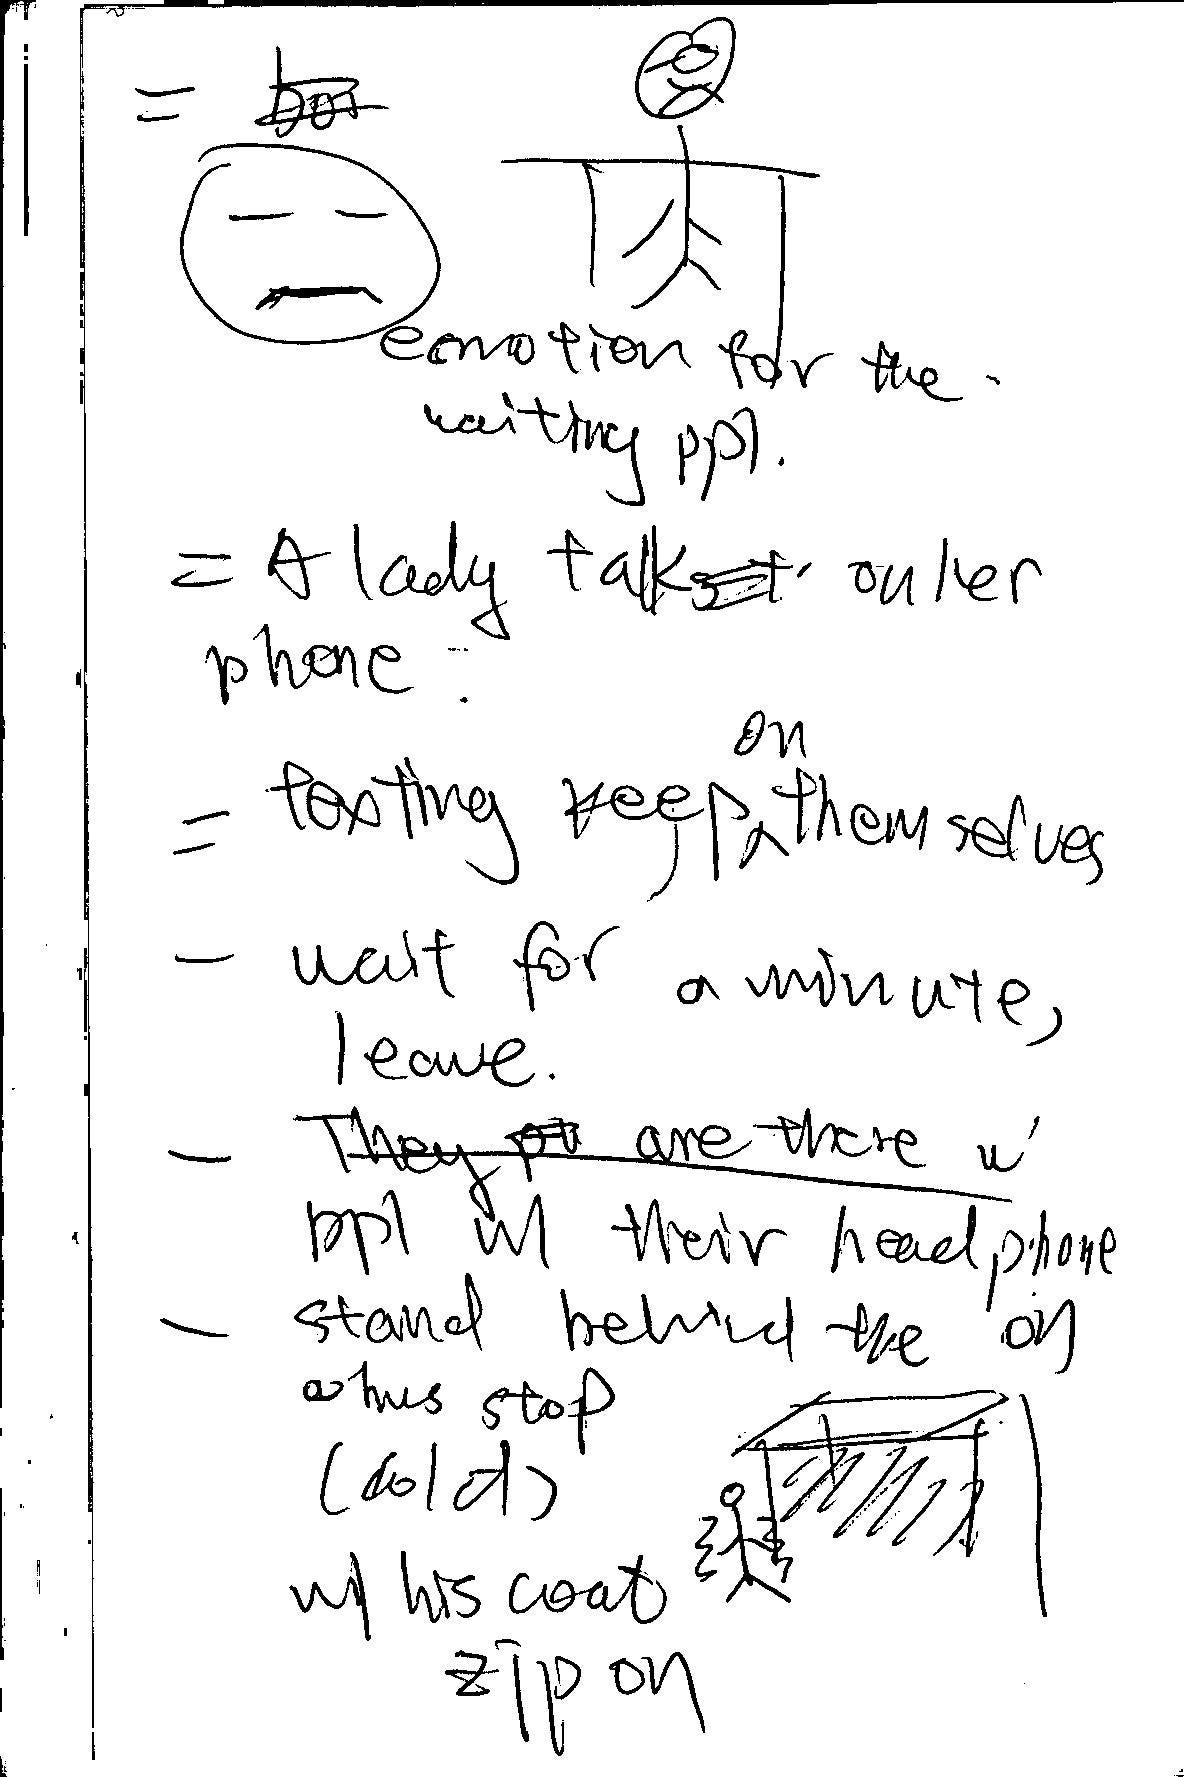 emotion for the
waiting ppl.
= A lady talk on her
phone.
= texting keep on themselves
- wait for a minute,
leave.
- They are there w/
ppl w/ their headphone
- stand behind the
bus stop
(cold)
w/ his coat
zip on